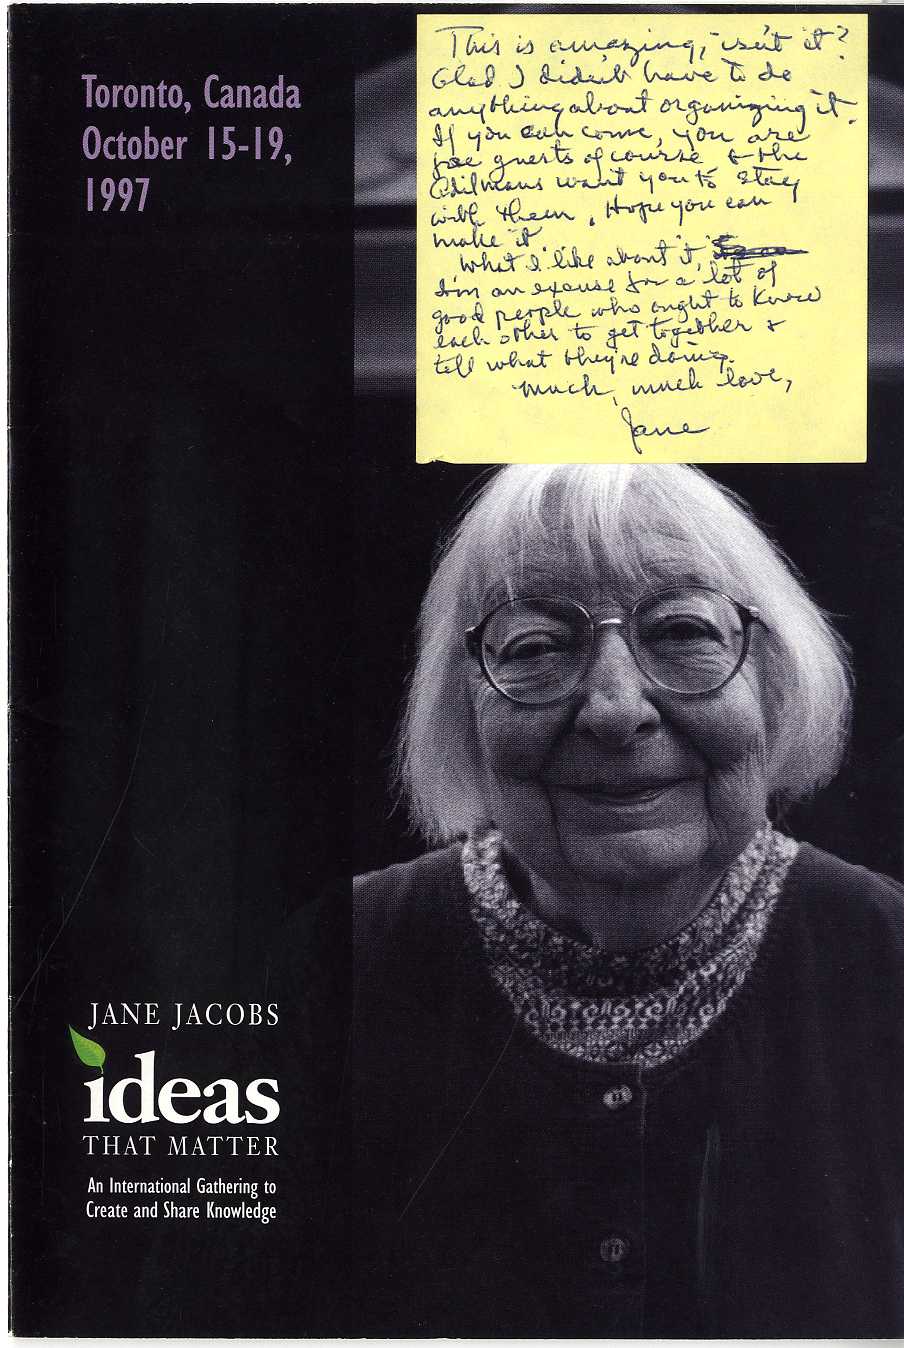 Toronto, Canada
October 15-19,
1997
This is amazing, isn't it?
Glad I didn't have to do
anything about organizing it.
If you can come, you are
guests of course & the
want you to stay
with them. Hope you can
make it
What I like about it,
I'm an excuse for a lot of
good people who ought to know
each other to get together &
tell what they're doing.
Much, much love,
Jane
JANE JACOBS
ideas
THAT MATTER
An International Gathering to
Create and Share Knowledge